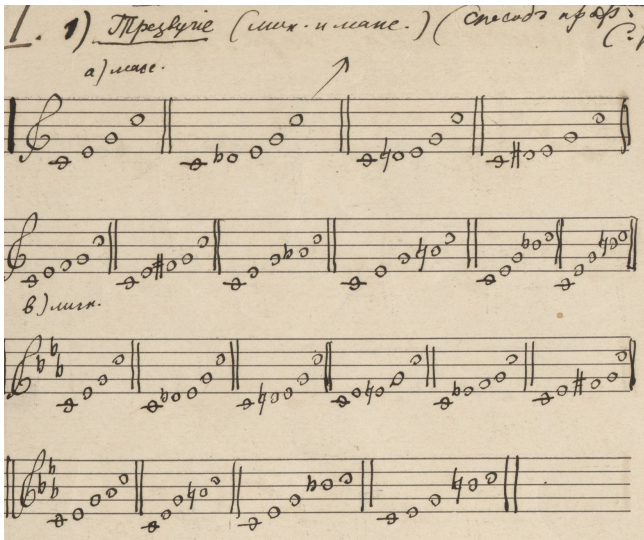 1. 1) Трезвучіе (мин. и маж.) (Способъ
а) маж.
в) мин.